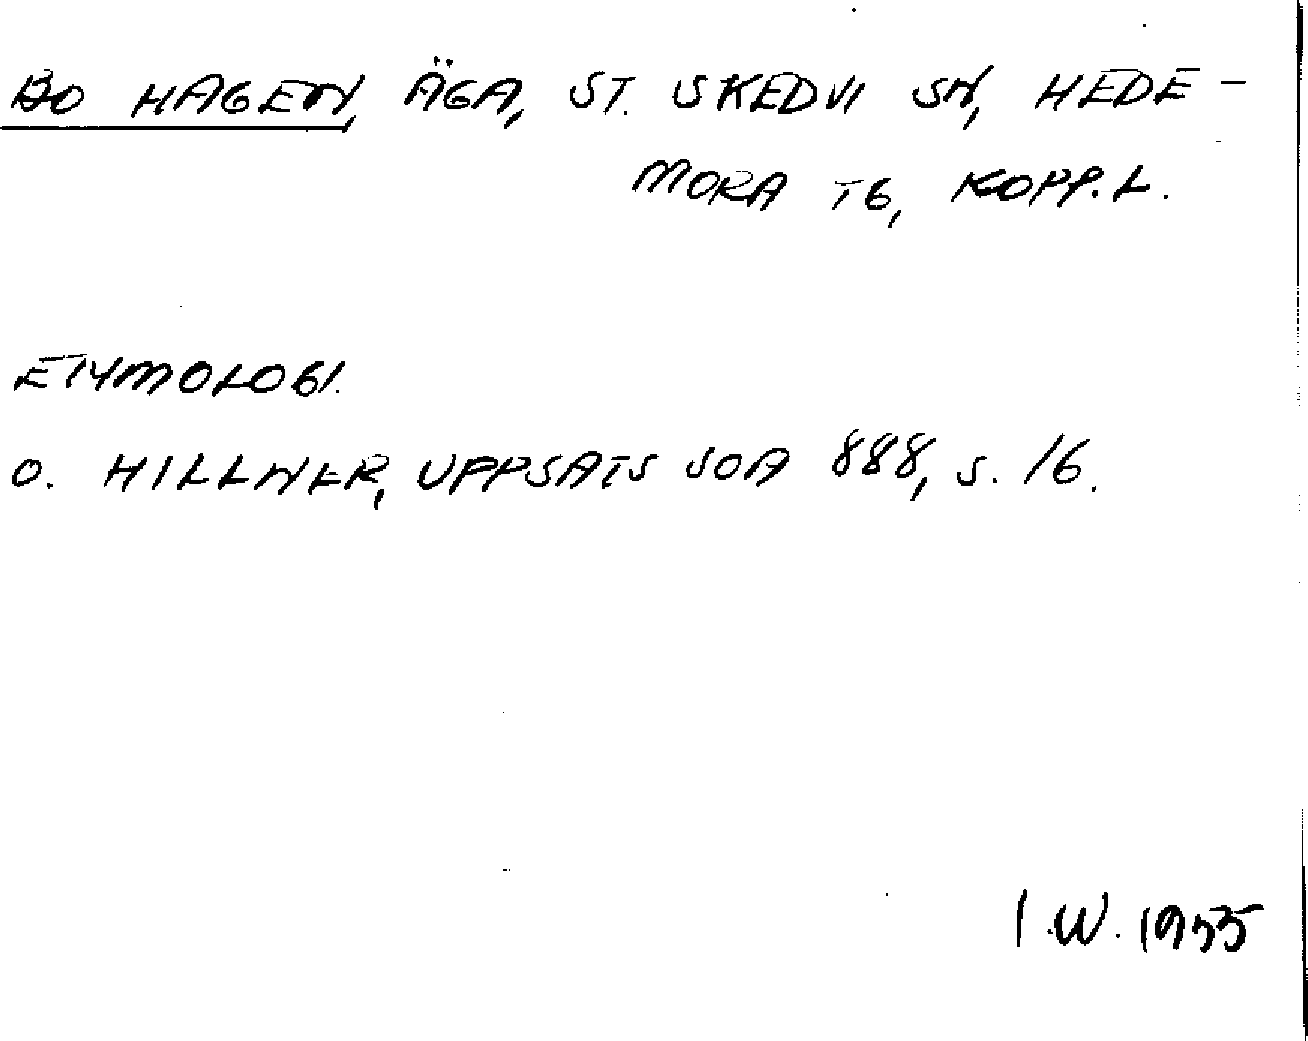 BO HAGEN, ÄGA, ST. SKEDVI SN, HEDE-
MORA TG, KOPP. L.
ETYMOLOGI.
O. HILLNER, UPPSATS SOA 888, S. 16.
I.W. 1955